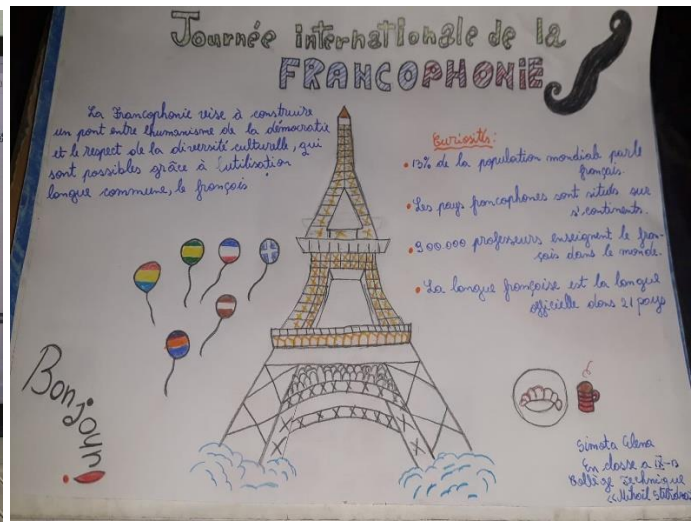 Journée internationale de la
FRANCOPHONIE
La Francophonie vise à construire
un pont entre l'humanisme de la démocratie
et le respect de la diversité culturelle, qui
sont possibles grâce à l'utilisation
langue commune, le français
Curiosités:
• 13% de la population mondiale parle
français.
• Les pays francophones sont situés que
s' continents.
• 900.000 professeurs enseignent le fran-
çais dans le monde.
• La langue française est la langue
officielle dans 21 pays
Bonjour!
Simota Elena
En classe a IX-
Collège Technique